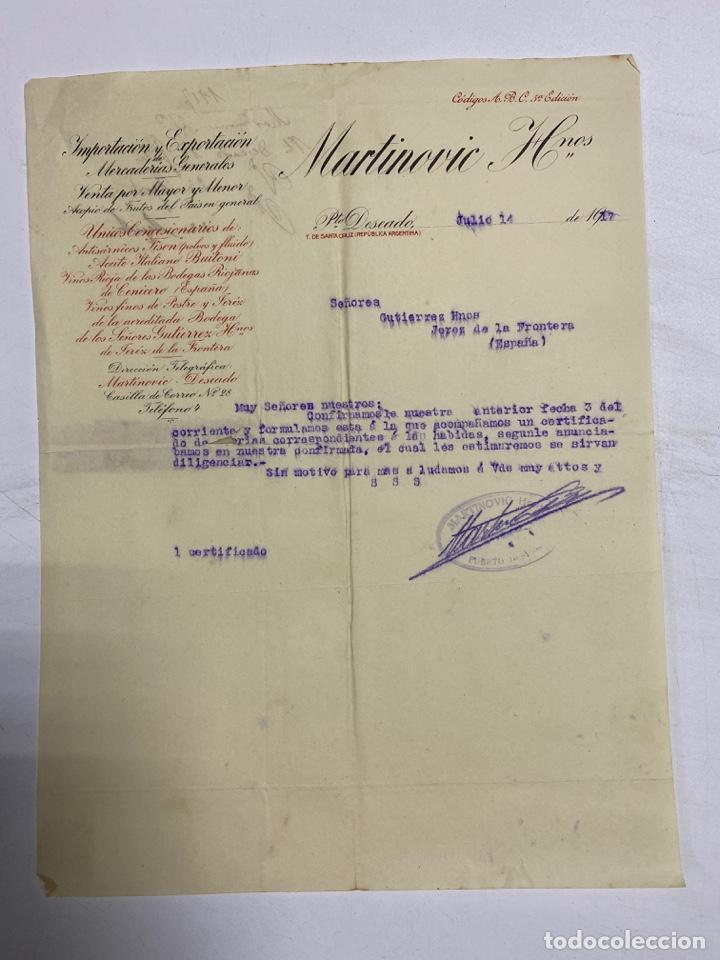 Códigos A.B.C. 5ª Edición
Martinovic Hnos
Importación y Exportación
de
Mercaderías Generales
Venta por Mayor y Menor
Acopio de Frutos del País en general
Unicos Concesionarios de:
Antisárnicos Fison (polvos y fluido)
Aceite Italiano Buitoni
Vinos Rioja de los Bodegas Riojanas
de Cenicero (España)
Vinos finos de Postre y Jeréz
de la acreditada Bodega
de los Señores Gutierrez Hnos
de Jeréz de la Frontera
Dirección Telegráfica
Martinovic - Deseado
Casilla de Correo Nº 28
Teléfono 4
Pto Deseado, Julio 14 de 1917
T. DE SANTA CRUZ (REPÚBLICA ARGENTINA)
Señores
Gutierrez Hnos
Jerez de la Frontera
(España)
Muy Señores nuestros:
Confirmamosle nuestra anterior fecha 3 del
corriente y formulamos esta á la que acompañamos un certifica-
do de correspondientes á las habidas, segunle anuncia-
bamos en nuestra confirmada, el cual les estimaremos se sirvan
diligenciar.-
Sin motivo para mas saludamos á Vds muy attos y
S S S
MARTINOVIC
PUERTO
1 certificado
todocoleccion
todocoleccion.net